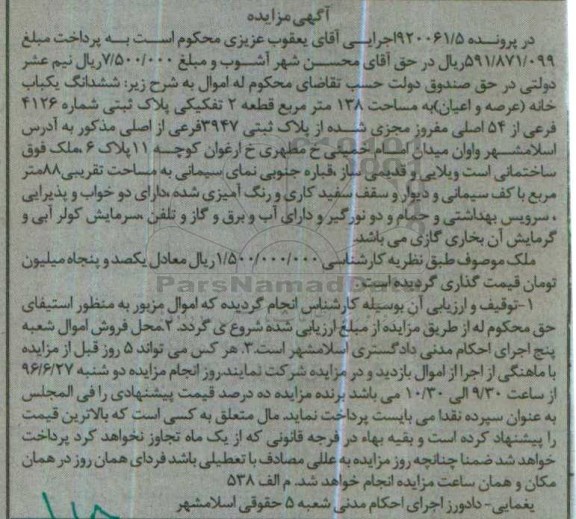 آگهی مزایده
در پرونده ۹۲۰۰۶۱/۵اجرایی آقای یعقوب عزیزی محکوم است به پرداخت مبلغ
۵۹۱/۸۷۱/۰۹۹ریال در حق آقای محسن شهر آشوب و مبلغ ۷/۵۰۰/۰۰۰ریال نیم عشر
دولتی در حق صندوق دولت حسب تقاضای محکوم له اموال به شرح زیر: ششدانگ یکباب
خانه (عرصه و اعیان)به مساحت ۱۳۸ متر مربع قطعه ۲ تفکیکی پلاک ثبتی شماره ۴۱۲۶
فرعی از ۵۴ اصلی مفروز مجزی شده از پلاک ثبتی ۳۹۴۷فرعی از اصلی مذکور به آدرس
اسلامشهر واوان میدان امام خمینی خ مطهری خ ارغوان کوچه ۱۱پلاک ۶ ،ملک فوق
ساختمانی است ویلایی و قدیمی ساز ،قباره جنوبی نمای سیمانی به مساحت تقریبی۸۸متر
مربع با کف سیمانی و دیوار و سقف سفید کاری و رنگ آمیزی شده ،دارای دو خواب و پذیرایی
، سرویس بهداشتی و حمام و دو نورگیر و دارای آب و برق و گاز و تلفن ،سرمایش کولر آبی و
گرمایش آن بخاری گازی می باشد.
ملک موصوف طبق نظریه کارشناسی ۱/۵۰۰/۰۰۰/۰۰۰ریال معادل یکصد و پنجاه میلیون
تومان قیمت گذاری گردیده است.
ParsNamadData
۱-توقیف و ارزیابی آن بوسیله کارشناس انجام گردیده که اموال مزبور به منظور استیفای
حق محکوم له از طریق مزایده از مبلغ ارزیابی شده شروع ی گردد. ۲.محل فروش اموال شعبه
پنج اجرای احکام مدنی دادگستری اسلامشهر است.۳. هر کس می تواند ۵ روز قبل از مزایده
با ماهنگی از اجرا از اموال بازدید و در مزایده شرکت نمایند.روز انجام مزایده دو شنبه ۹۶/۶/۲۷
از ساعت ۹/۳۰ الی ۱۰/۳۰ می باشد برنده مزایده ده درصد قیمت پیشنهادی را فی المجلس
به عنوان سپرده نقدا می بایست پرداخت نماید. مال متعلق به کسی است که بالاترین قیمت
را پیشنهاد کرده است و بقیه بهاء در فرجه قانونی که از یک ماه تجاوز نخواهد کرد پرداخت
خواهد شد ضمنا چنانچه روز مزایده به عللی مصادف با تعطیلی باشد فردای همان روز در همان
مکان و همان ساعت مزایده انجام خواهد شد. م الف ۵۳۸
یغمایی- دادورز اجرای احکام مدنی شعبه ۵ حقوقی اسلامشهر